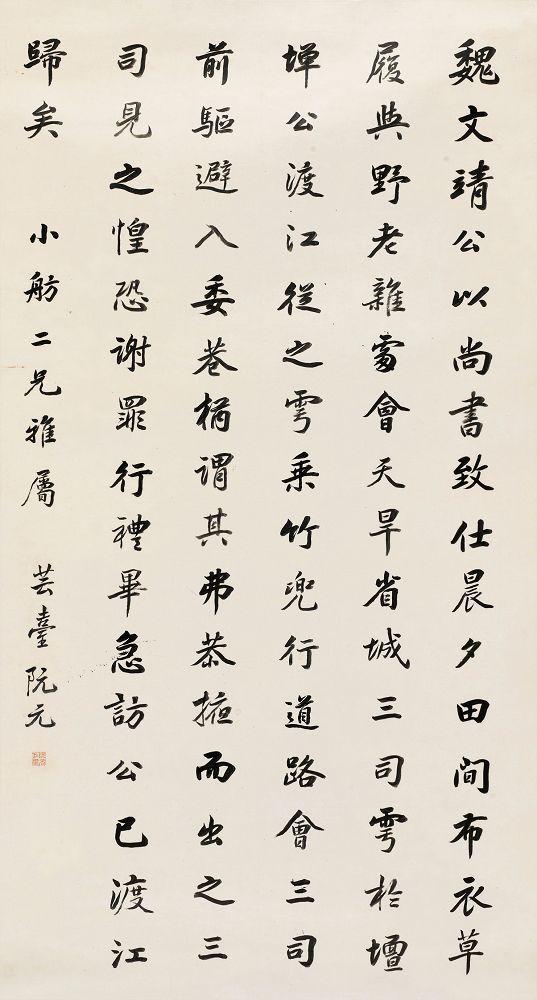 魏文靖公以尚書致仕晨夕田間布衣草
履與野老雜處會天旱省城三司雩於壇
墠公渡江從之雩乘竹兜行道路會三司
前驅避入委巷猶謂其弗恭掖而出之三
司見之惶恐謝罪行禮畢急訪公已渡江
歸矣 小舫二兄雅屬 芸臺阮元